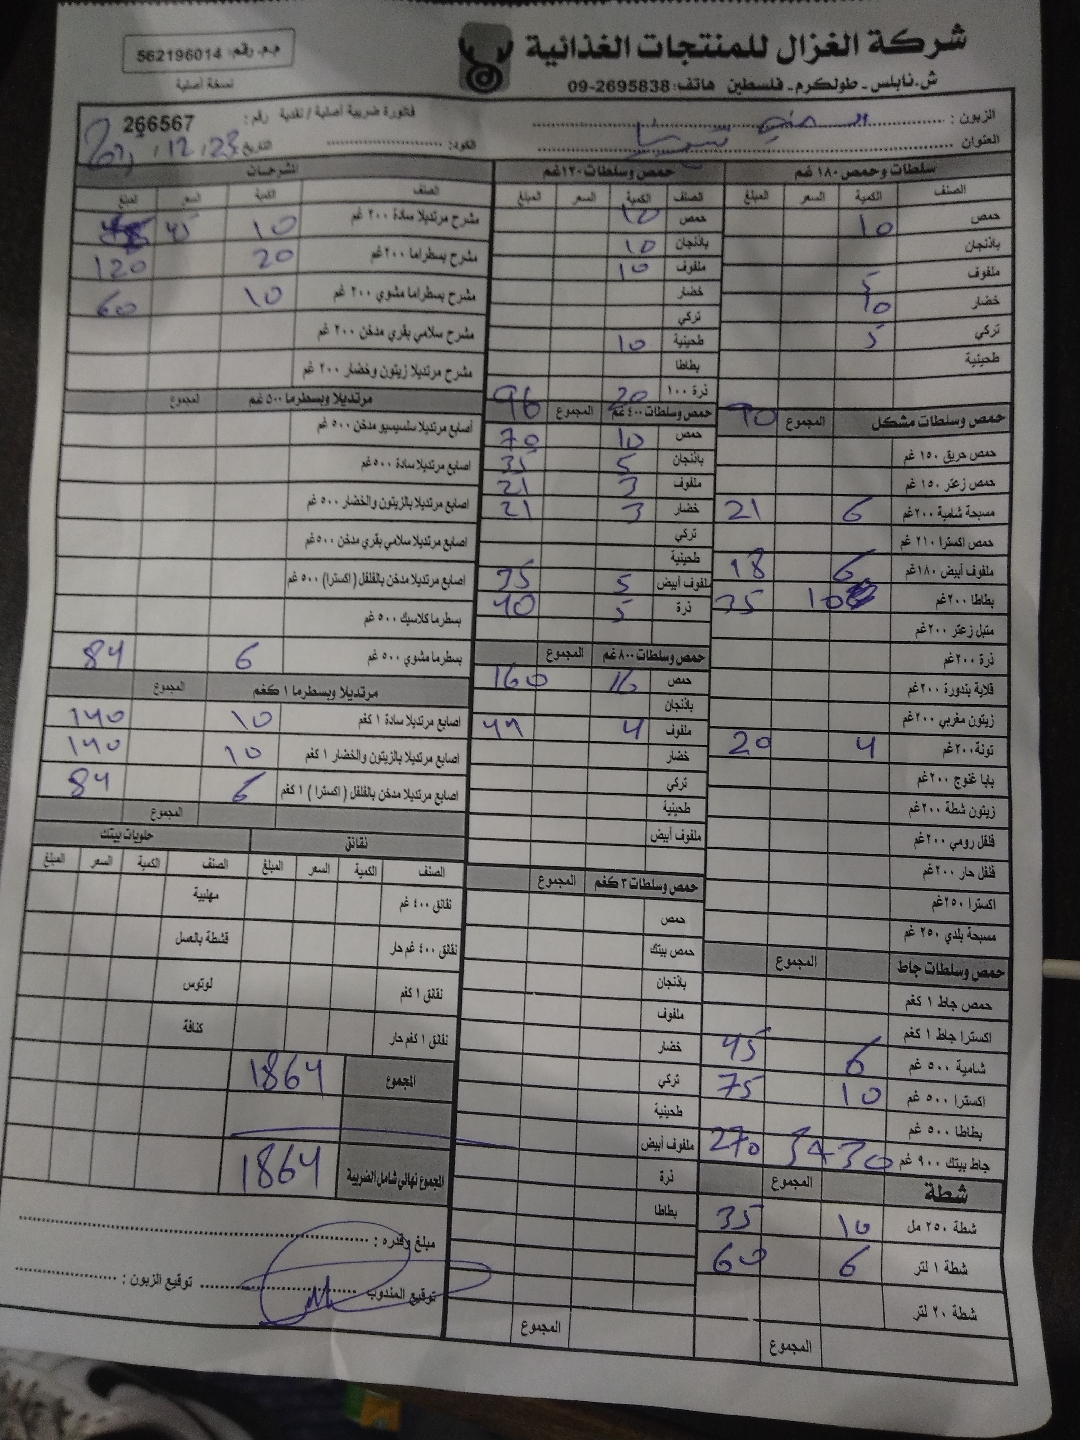 شركة الغزال للمنتجات الغذائية
م.م. رقم: 562196014
ش.نابلس - طولكرم - فلسطين هاتف: 09-2695838
نسخة أصلية
الزبون :
فاتورة ضريبية أصلية / نقدية رقم : 266567
العنوان
الكود:
التاريخ 23 / 12 /
سلطات وحمص ١٨٠ غم
الصنف الكمية السعر المبلغ
حمص 10
باذنجان
ملفوف 5
خضار 10
تركي 5
طحينية
حمص وسلطات مشكل المجموع 90
حمص حريق ١٥٠ غم
حمص زعتر ١٥٠ غم
مسبحة شامية ٢٠٠غم 6 21
حمص اكسترا ٢١٠ غم
ملفوف أبيض ١٨٠غم 6 18
بطاطا ٢٠٠غم 10 35
متبل زعتر ٢٠٠غم
ذرة ٢٠٠غم
قلاية بندورة ٢٠٠غم
زيتون مغربي ٢٠٠غم
تونة ٢٠٠غم 4 20
بابا غنوج ٢٠٠غم
زيتون شطة ٢٠٠غم
فلفل رومي ٢٠٠غم
فلفل حار ٢٠٠غم
اكسترا ٢٥٠غم
مسبحة بلدي ٢٥٠ غم
حمص وسلطات جاط المجموع
حمص جاط ١ كغم
اكسترا جاط ١ كغم
شامية ٥٠٠ غم 6 45
اكسترا ٥٠٠ غم 10 75
بطاطا ٥٠٠ غم
جاط بيتك ٩٠٠ غم 30 270
شطة المجموع
شطة ٢٥٠ مل 10 35
شطة ١ لتر 6 60
شطة ٢٠ لتر
المجموع
حمص وسلطات ١٣٠غم
الصنف الكمية السعر المبلغ
حمص 10
باذنجان 10
ملفوف 10
خضار
تركي
طحينية 10
بطاطا
ذرة ١٠٠ 20 96
حمص وسلطات ٤٠٠ غم المجموع
حمص 10 70
باذنجان 5 35
ملفوف 3 21
خضار 3 21
تركي
طحينية
ملفوف أبيض 5 35
ذرة 5 40
حمص وسلطات ٨٠٠ غم المجموع
حمص 16 160
باذنجان
ملفوف 4 44
خضار
تركي
طحينية
ملفوف أبيض
حمص وسلطات ٣ كغم المجموع
حمص
حمص بيتك
باذنجان
ملفوف
خضار
تركي
طحينية
ملفوف أبيض
ذرة
بطاطا
المجموع
المشرحات
الصنف الكمية السعر المبلغ
مشرح مرتديلا سادة ٢٠٠ غم 10 45
مشرح بسطراما ٢٠٠غم 20 120
مشرح بسطراما مشوي ٢٠٠ غم 10 60
مشرح سلامي بقري مدخن ٢٠٠ غم
مشرح مرتديلا زيتون وخضار ٢٠٠ غم
مرتديلا وبسطرما ٥٠٠ غم المجموع
أصابع مرتديلا سلسيسيو مدخن ٥٠٠ غم
اصابع مرتديلا سادة ٥٠٠ غم
اصابع مرتديلا بالزيتون والخضار ٥٠٠ غم
اصابع مرتديلا سلامي بقري مدخن ٥٠٠غم
اصابع مرتديلا مدخن بالفلفل (اكسترا) ٥٠٠ غم
بسطرما كلاسيك ٥٠٠ غم
بسطرما مشوي ٥٠٠ غم 6 84
مرتديلا وبسطرما ١ كغم المجموع
اصابع مرتديلا سادة ١ كغم 10 140
اصابع مرتديلا بالزيتون والخضار ١ كغم 10 140
اصابع مرتديلا مدخن بالفلفل ( اكسترا ) ١ كغم 6 84
المجموع
نقانق حلويات بيتك
الصنف الكمية السعر المبلغ الصنف الكمية السعر المبلغ
نقانق ٤٠٠ غم مهلبية
نقانق ٤٠٠ غم حار قشطة بالعسل
نقانق ١ كغم لوتوس
نقانق ١ كغم حار كنافة
المجموع 1864
المجموع نهائي شامل الضريبة 1864
مبلغ وقدره :
توقيع المندوب توقيع الزبون :